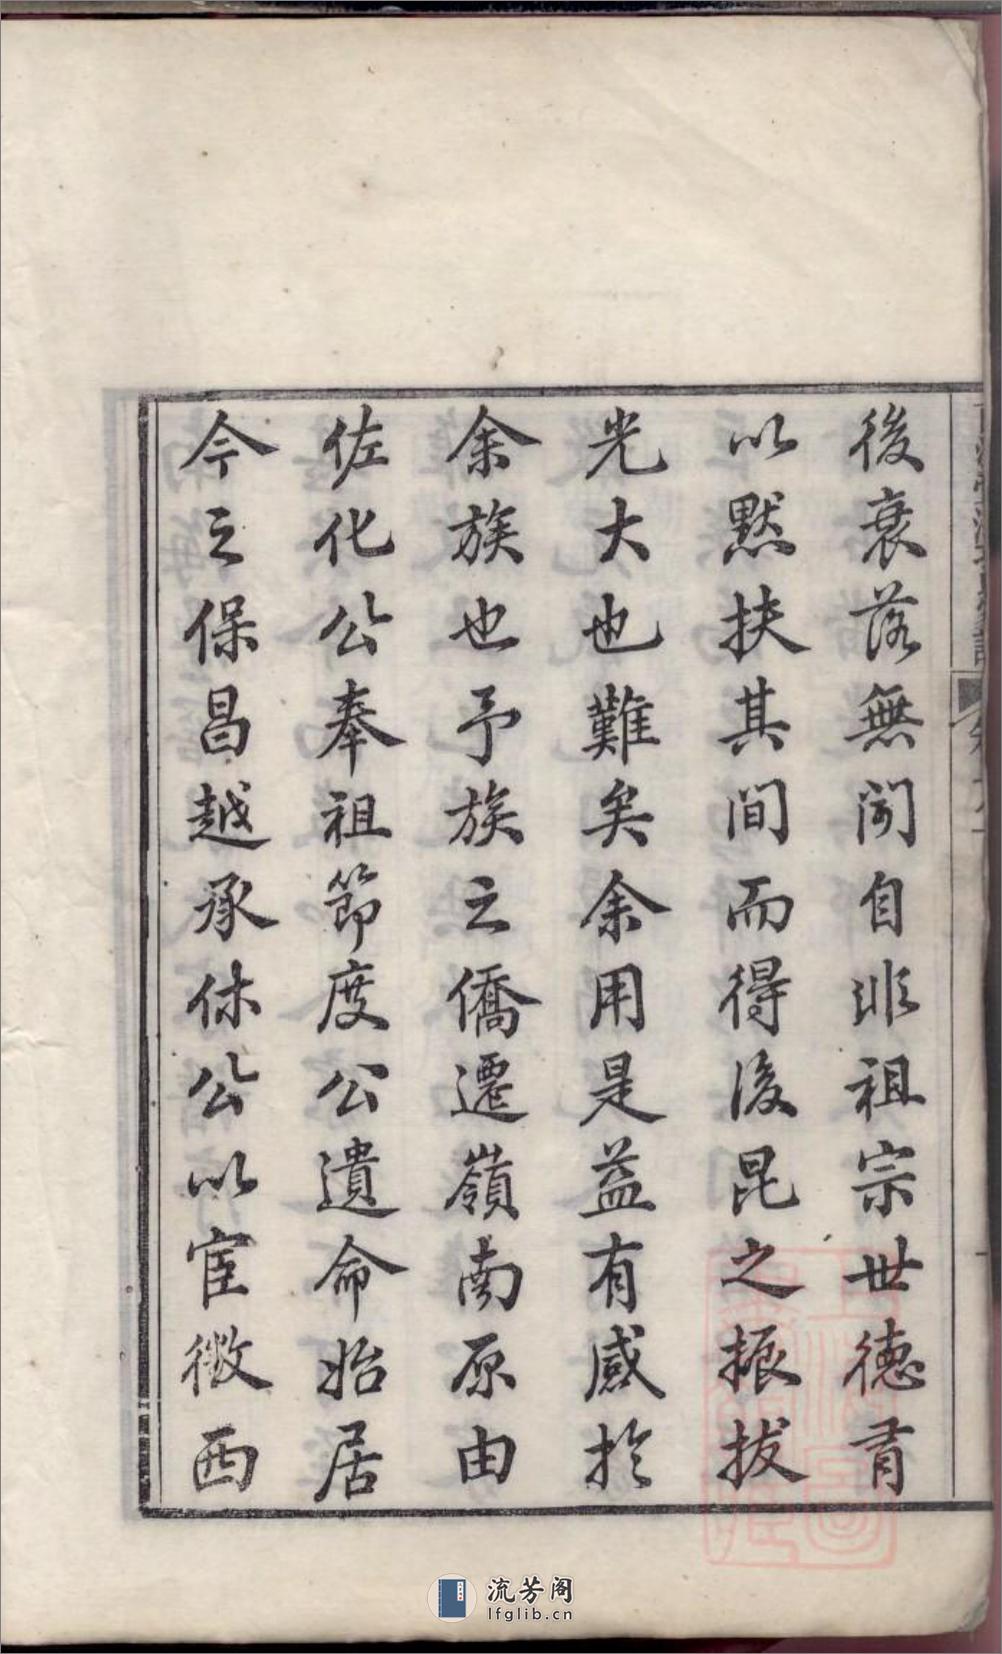 後衰落無聞自非祖宗世德有
以默扶其間而得後昆之振拔
光大也難矣余用是益有感於
余族也予族之僑遷嶺南原由
佐化公奉祖節度公遺命始居
今之保昌越承休公以宦徴西
流芳阁
lfglib.cn